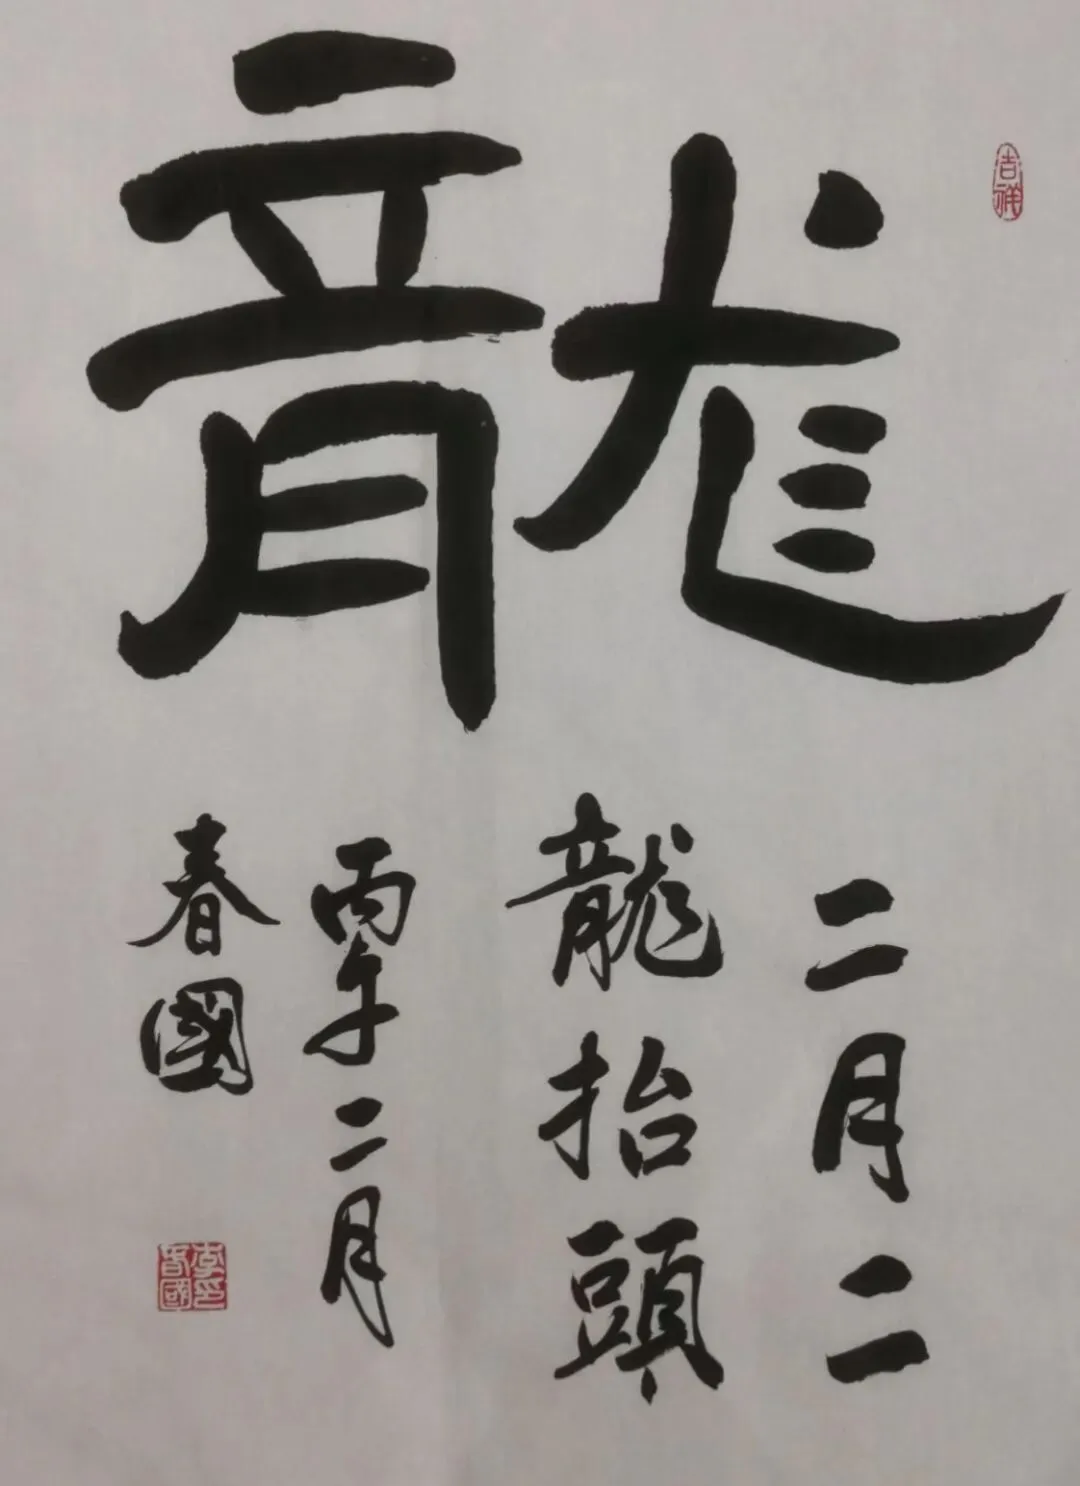 龍
吉祥
二月二
龍抬頭
丙午二月
春國
李印
春國